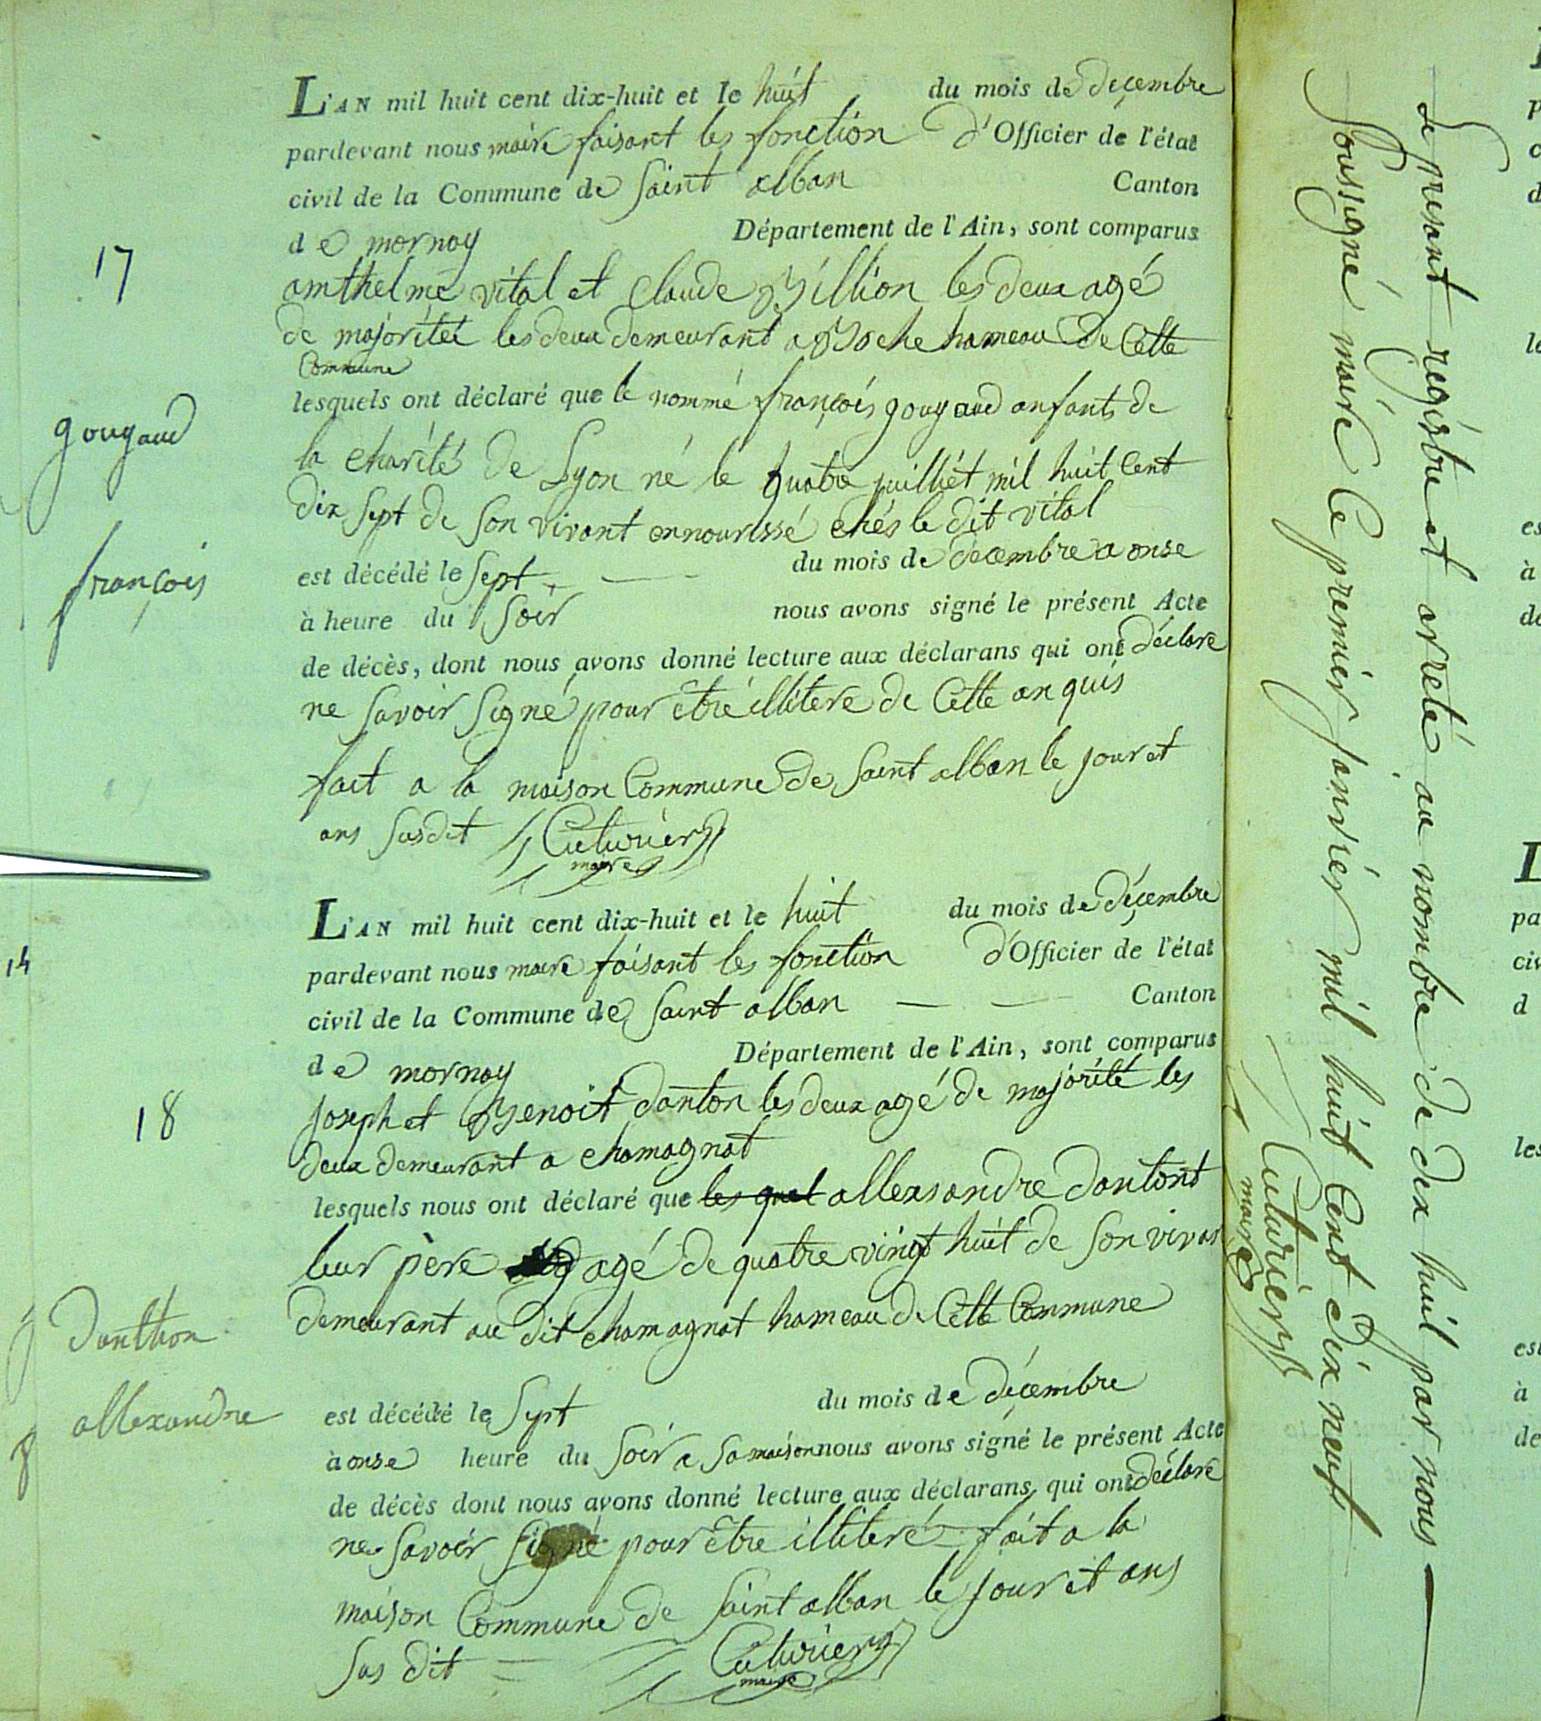 17
gougaud
françois
L'AN mil huit cent dix-huit et le huit du mois de decembre
pardevant nous maire faisant les fonction d'Officier de l'état
civil de la Commune de saint alban Canton
de mornay Département de l'Ain, sont comparus
amthelme vital et Claude Billion les deux agé
de majoritée les deux demeurant a Boche hameau de Cette
Commune
lesquels ont déclaré que le nommé françois gougaud anfants de
la charité de Lyon né le quatre juilliét mil huit Cent
dix sept de son vivant ennourissé chés le dit vital
est décédé le sept du mois de decembre a onse
à heure du soir nous avons signé le présent Acte
de décès, dont nous avons donné lecture aux déclarans qui ont déclare
ne savoir signé pour être illitere de Cette anquis
fait a la maison Commune de saint alban le jour et
ans susdit Cuturier
maire
14
18
Danthon
allexandre
L'AN mil huit cent dix-huit et le huit du mois de décembre
pardevant nous maire faisant les fonction d'Officier de l'état
civil de la Commune de saint alban Canton
de mornay Département de l'Ain, sont comparus
joseph et Benoit danton les deux agé de majorité les
deux demeurant a chamagnat
lesquels nous ont déclaré que les quel allexsandre dantont
leur père agé de quatre vingt huit de son vivan
demeurant au dit chamagnat hameau de Cette Commune
est décédé le sept du mois de décembre
à onse heure du soir a sa maison nous avons signé le présent Acte
de décès dont nous avons donné lecture aux déclarans qui ont déclare
ne savoir signé pour être illiteré fait a la
maison Commune de saint alban le jour et ans
sus dit Cuturier
maire
Le present registre et arreté au nombre de dix huit par nous
soussigné maire Ce premier janvier mil huit Cent dix neuf
Cuturier
maire